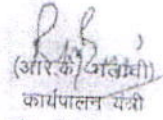 (आर.के. गलावी)
कार्यपालन यंत्री